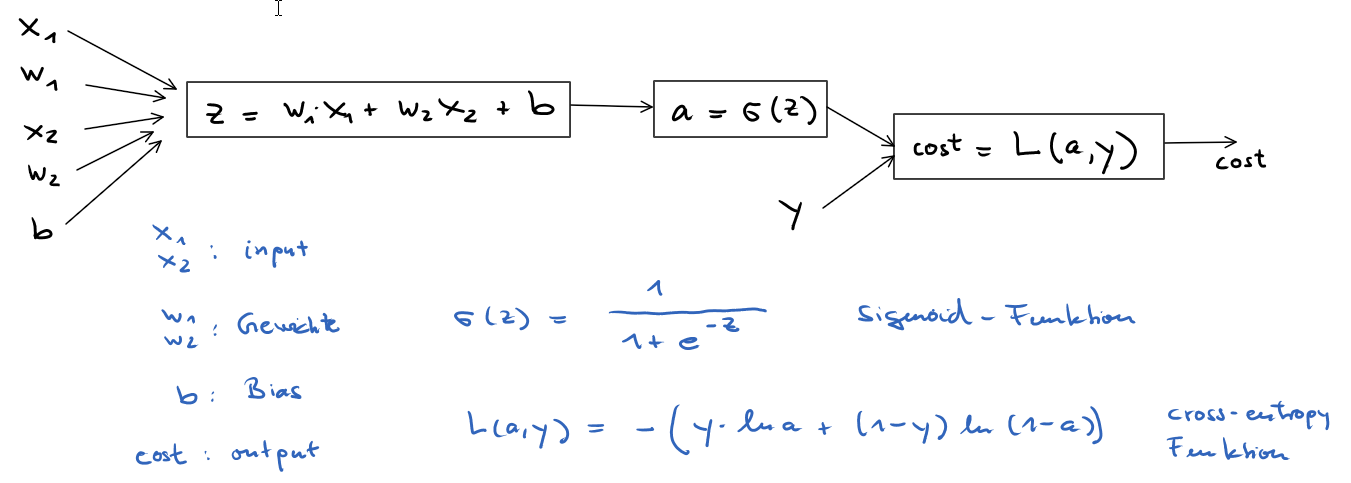 x₁
w₁
x₂
w₂
b
z = w₁·x₁ + w₂x₂ + b
a = σ(z)
y
cost = L(a,y)
cost
x₁
x₂ : input
w₁
w₂ : Gewichte
b : Bias
cost : output
σ(z) = 1 / (1 + e^(-z)) Sigmoid-Funktion
L(a,y) = -(y·ln a + (1-y) ln (1-a)) cross-entropy
Funktion